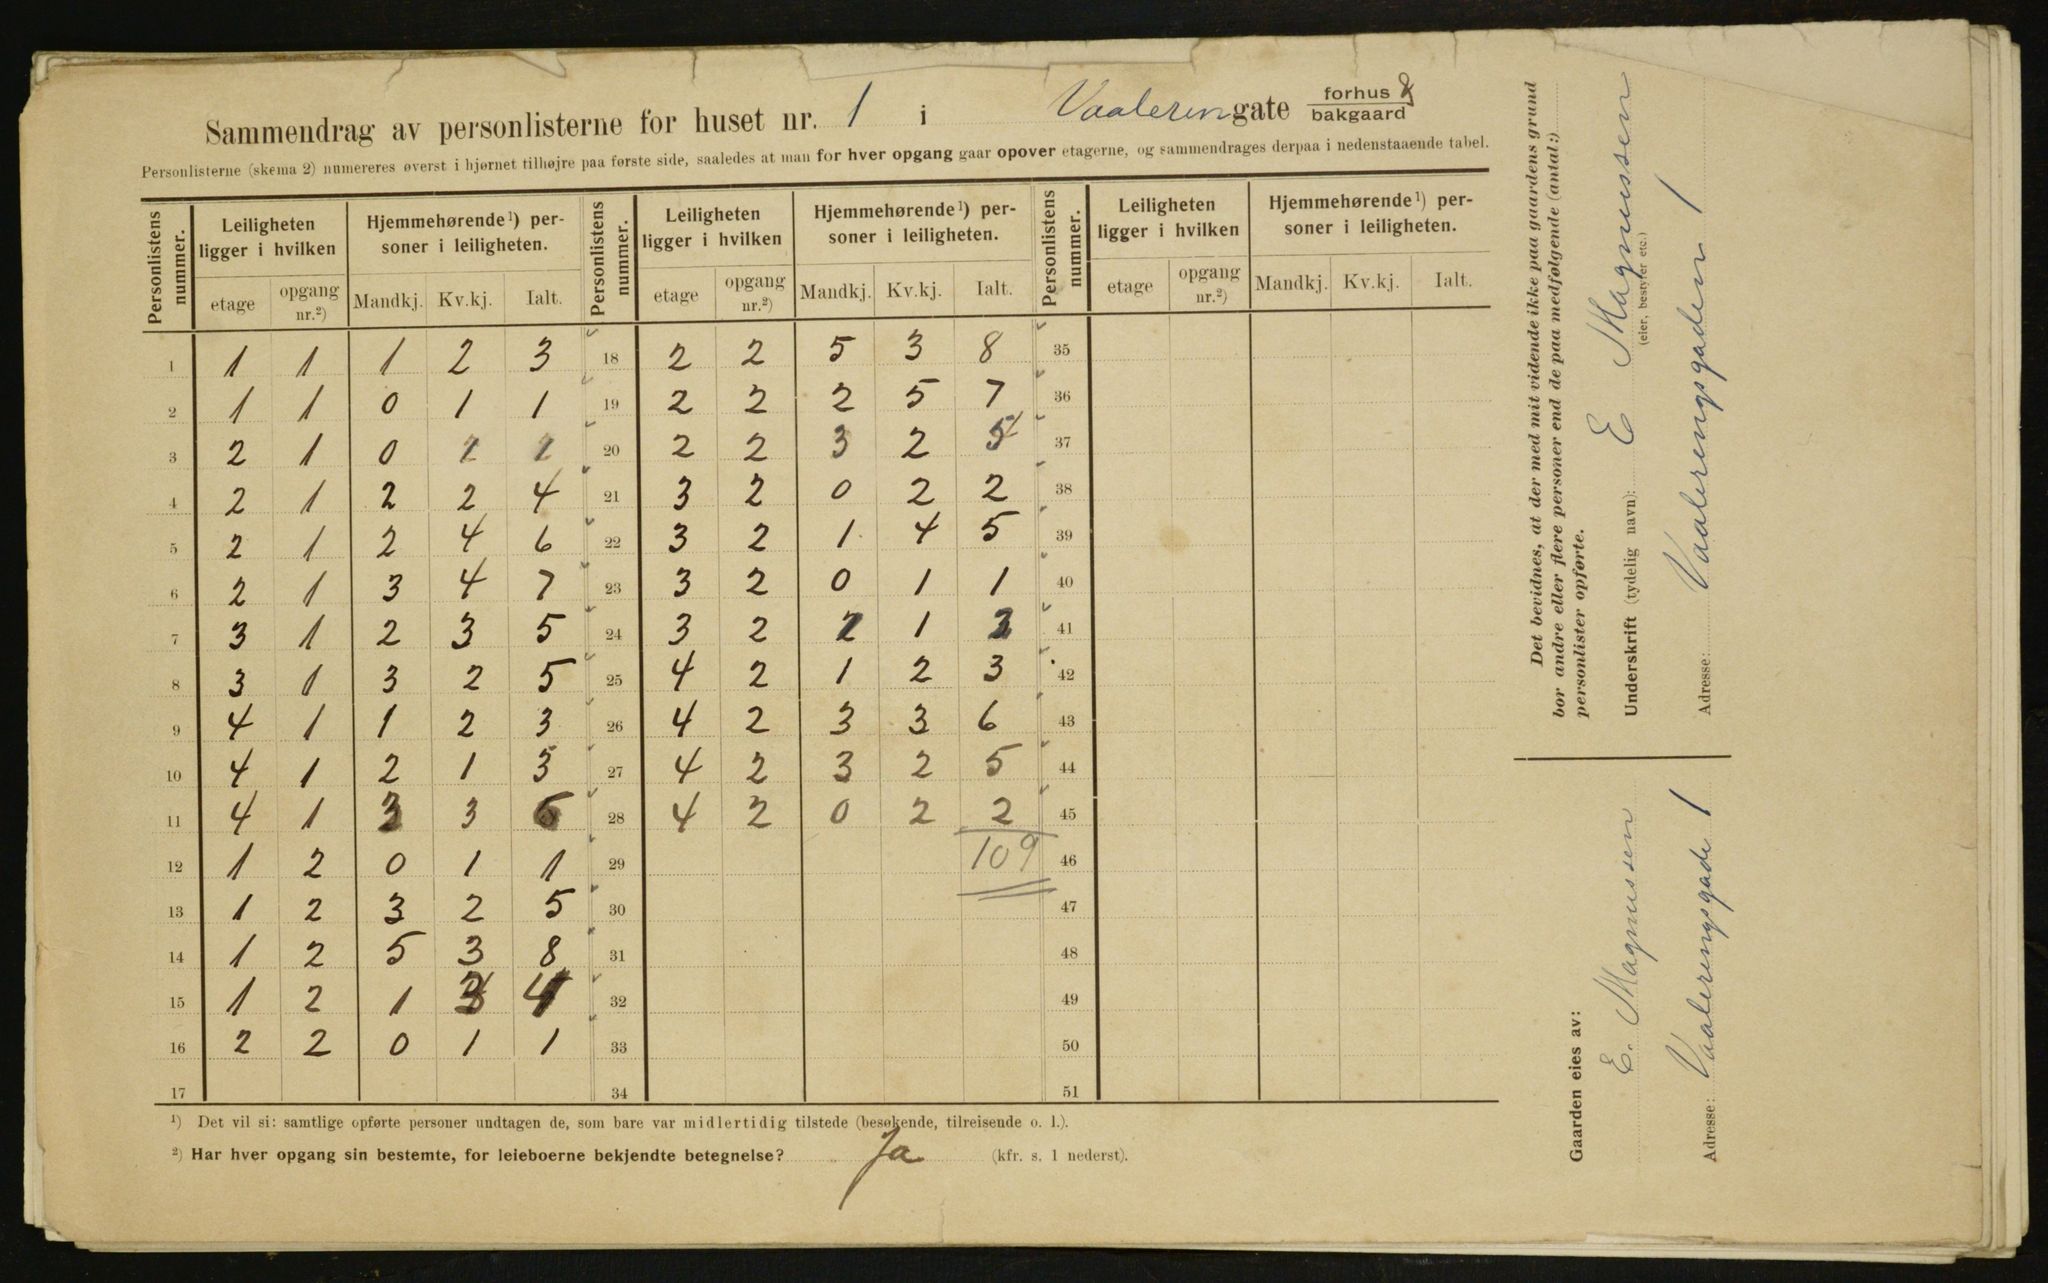 Sammendrag av personlisterne for huset nr. 1 i Vaaleringate forhus & bakgaard
Personlisterne (skema 2) numereres øverst i hjørnet tilhøjre paa første side, saaledes at man for hver opgang gaar opover etagerne, og sammendrages derpaa i nedenstaaende tabel.
Personlistens nummer. | Leiligheten ligger i hvilken | Hjemmehørende¹) personer i leiligheten. | Personlistens nummer. | Leiligheten ligger i hvilken | Hjemmehørende¹) personer i leiligheten. | Personlistens nummer. | Leiligheten ligger i hvilken | Hjemmehørende¹) personer i leiligheten.
etage | opgang nr.²) | Mandkj. | Kv.kj. | Ialt. | etage | opgang nr.²) | Mandkj. | Kv.kj. | Ialt. | etage | opgang nr.²) | Mandkj. | Kv.kj. | Ialt.
1 | 1 | 1 | 1 | 2 | 3 | 18 | 2 | 2 | 5 | 3 | 8 | 35
2 | 1 | 1 | 0 | 1 | 1 | 19 | 2 | 2 | 2 | 5 | 7 | 36
3 | 2 | 1 | 0 | | | 20 | 2 | 2 | 3 | 2 | 5 | 37
4 | 2 | 1 | 2 | 2 | 4 | 21 | 3 | 2 | 0 | 2 | 2 | 38
5 | 2 | 1 | 2 | 4 | 6 | 22 | 3 | 2 | 1 | 4 | 5 | 39
6 | 2 | 1 | 3 | 4 | 7 | 23 | 3 | 2 | 0 | 1 | 1 | 40
7 | 3 | 1 | 2 | 3 | 5 | 24 | 3 | 2 | | 1 | | 41
8 | 3 | 1 | 3 | 2 | 5 | 25 | 4 | 2 | 1 | 2 | 3 | 42
9 | 4 | 1 | 1 | 2 | 3 | 26 | 4 | 2 | 3 | 3 | 6 | 43
10 | 4 | 1 | 2 | 1 | 3 | 27 | 4 | 2 | 3 | 2 | 5 | 44
11 | 4 | 1 | 3 | 3 | 6 | 28 | 4 | 2 | 0 | 2 | 2 | 45
12 | 1 | 2 | 0 | 1 | 1 | 29 | | | | | 109 | 46
13 | 1 | 2 | 3 | 2 | 5 | 30 | 47
14 | 1 | 2 | 5 | 3 | 8 | 31 | 48
15 | 1 | 2 | 1 | 3 | 4 | 32 | 49
16 | 2 | 2 | 0 | 1 | 1 | 33 | 50
17 | 34 | 51
¹) Det vil si: samtlige opførte personer undtagen de, som bare var midlertidig tilstede (besøkende, tilreisende o. l.).
²) Har hver opgang sin bestemte, for leieboerne bekjendte betegnelse? Ja (kfr. s. 1 nederst).
Det bevidnes, at der med mit vidende ikke paa gaardens grund
bor andre eller flere personer end de paa medfølgende (antal:)
personlister opførte.
Underskrift (tydelig navn): E Magnussen
(eier, bestyrer etc.)
Adresse: Vaalerengsgaden 1
Gaarden eies av:
E. Magnussen
Adresse: Vaalerengsgade 1